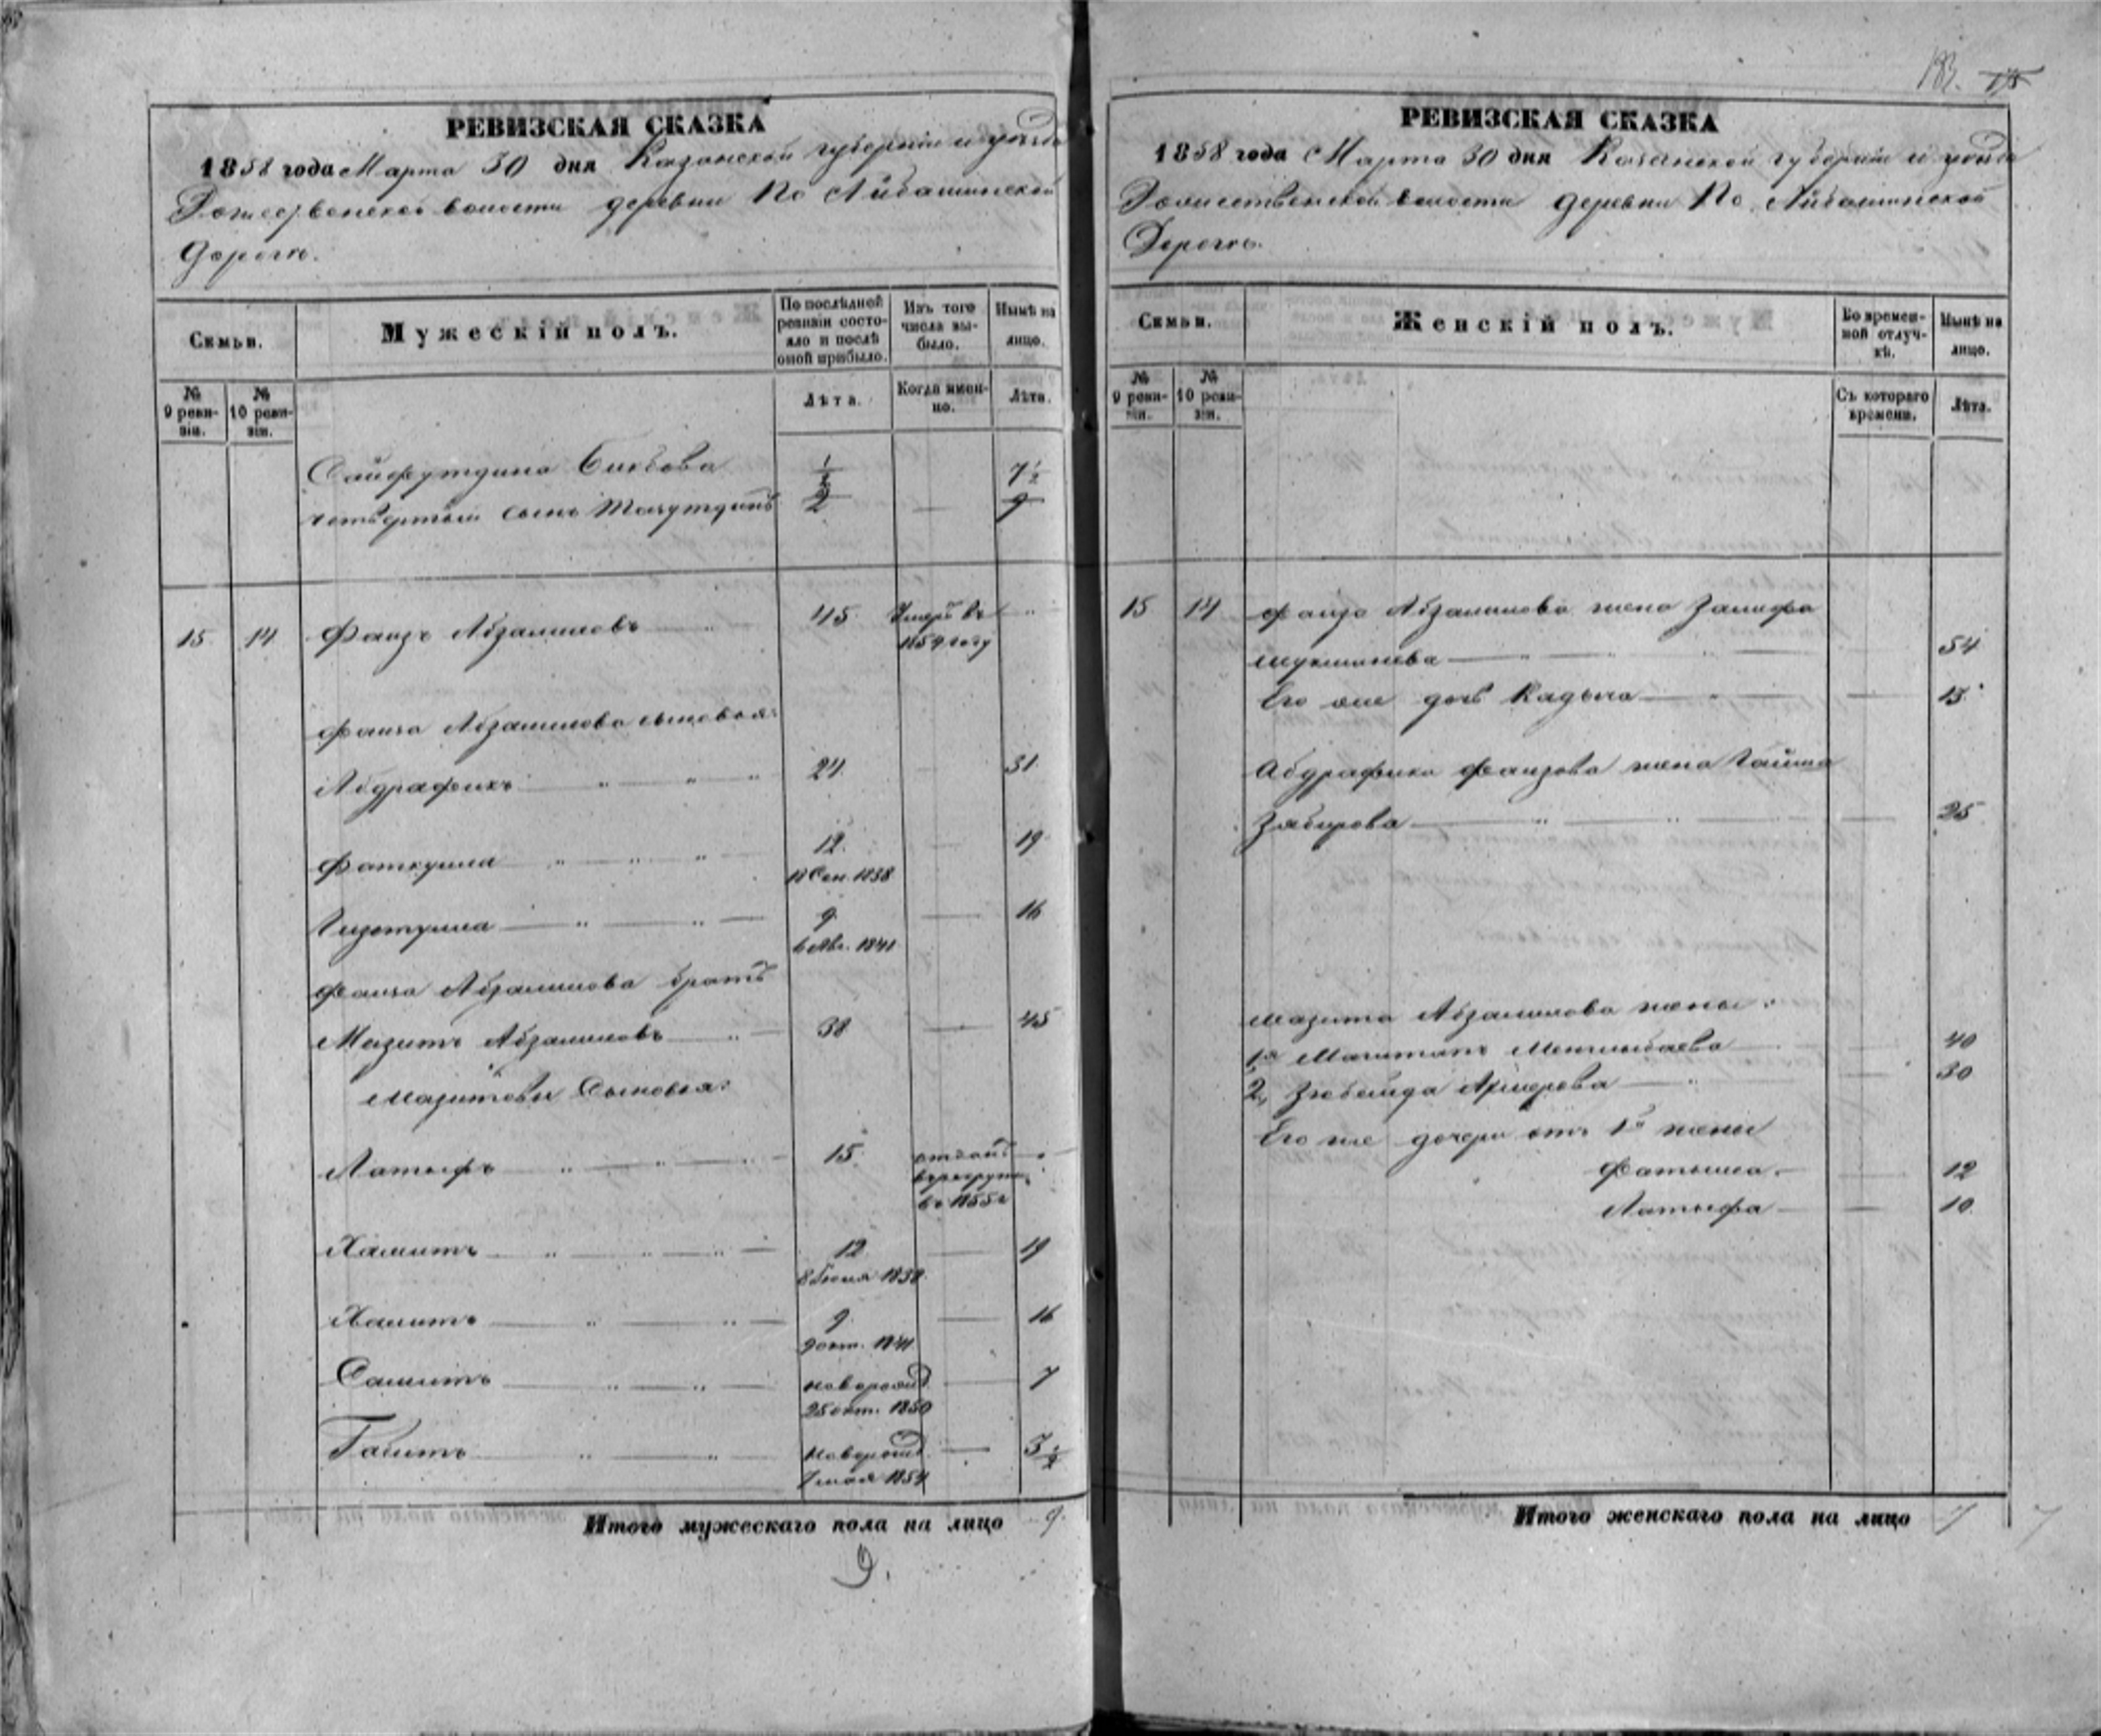 РЕВИЗСКАЯ СКАЗКА
1858 года Марта 30 дня Казанской губерніи и уѣзда
волости деревни По Айбашинской
дорогѣ.
Семьи.
Мужескій полъ.
По послѣдней ревизіи состояло и послѣ оной прибыло.
Изъ того числа выбыло.
Нынѣ на лицо.
№ 9 ревизіи.
№ 10 ревизіи.
Лѣта.
Когда именно.
Лѣта.
Сайфутдина 1/2 7 1/2
четвертый сынъ 2 9
15. 14 Фаизъ Абзалиловъ 45. Умеръ въ
году
Фаиза Абзалилова сыновья:
Абдрафикъ 24. 31.
Фаткулла 12. 19
Сен. 1838
Гизетулла 9. 16
6 Авг. 1841
Фаиза Абзалилова братъ
Мазитъ Абзалиловъ 38 45
Мазитовы Сыновья:
Латыфъ 15. отданъ
в рекруты
въ 1855 г
Хамитъ 12 19
8 Іюня 1838.
Халитъ 9. 16
9 окт. 1841
Самитъ новорожд. 7
25 окт. 1850
Габитъ новорожд. 3 1/2
мая 1854
Итого мужескаго пола на лицо 9.
9.
183. 175
РЕВИЗСКАЯ СКАЗКА
1858 года Марта 30 дня Казанской губерніи и уѣзда
волости деревни По Айбашинской
Дорогѣ.
Семьи.
Женскій полъ.
Во временной отлучкѣ.
Нынѣ на лицо.
№ 9 ревизіи.
№ 10 ревизіи.
Съ котораго времени.
Лѣта.
15 14 Фаиза Абзалилова жена Залифа
54
Его же дочь Кадыча 15.
Абдрафика Фаизова жена
Забирова 25
Мазита Абзалилова жены:
1я 40
2, Зюбейда 30
Его же дочери отъ 1й жены
Фатыма 12
Латыфа 10.
Итого женскаго пола на лицо 7 7